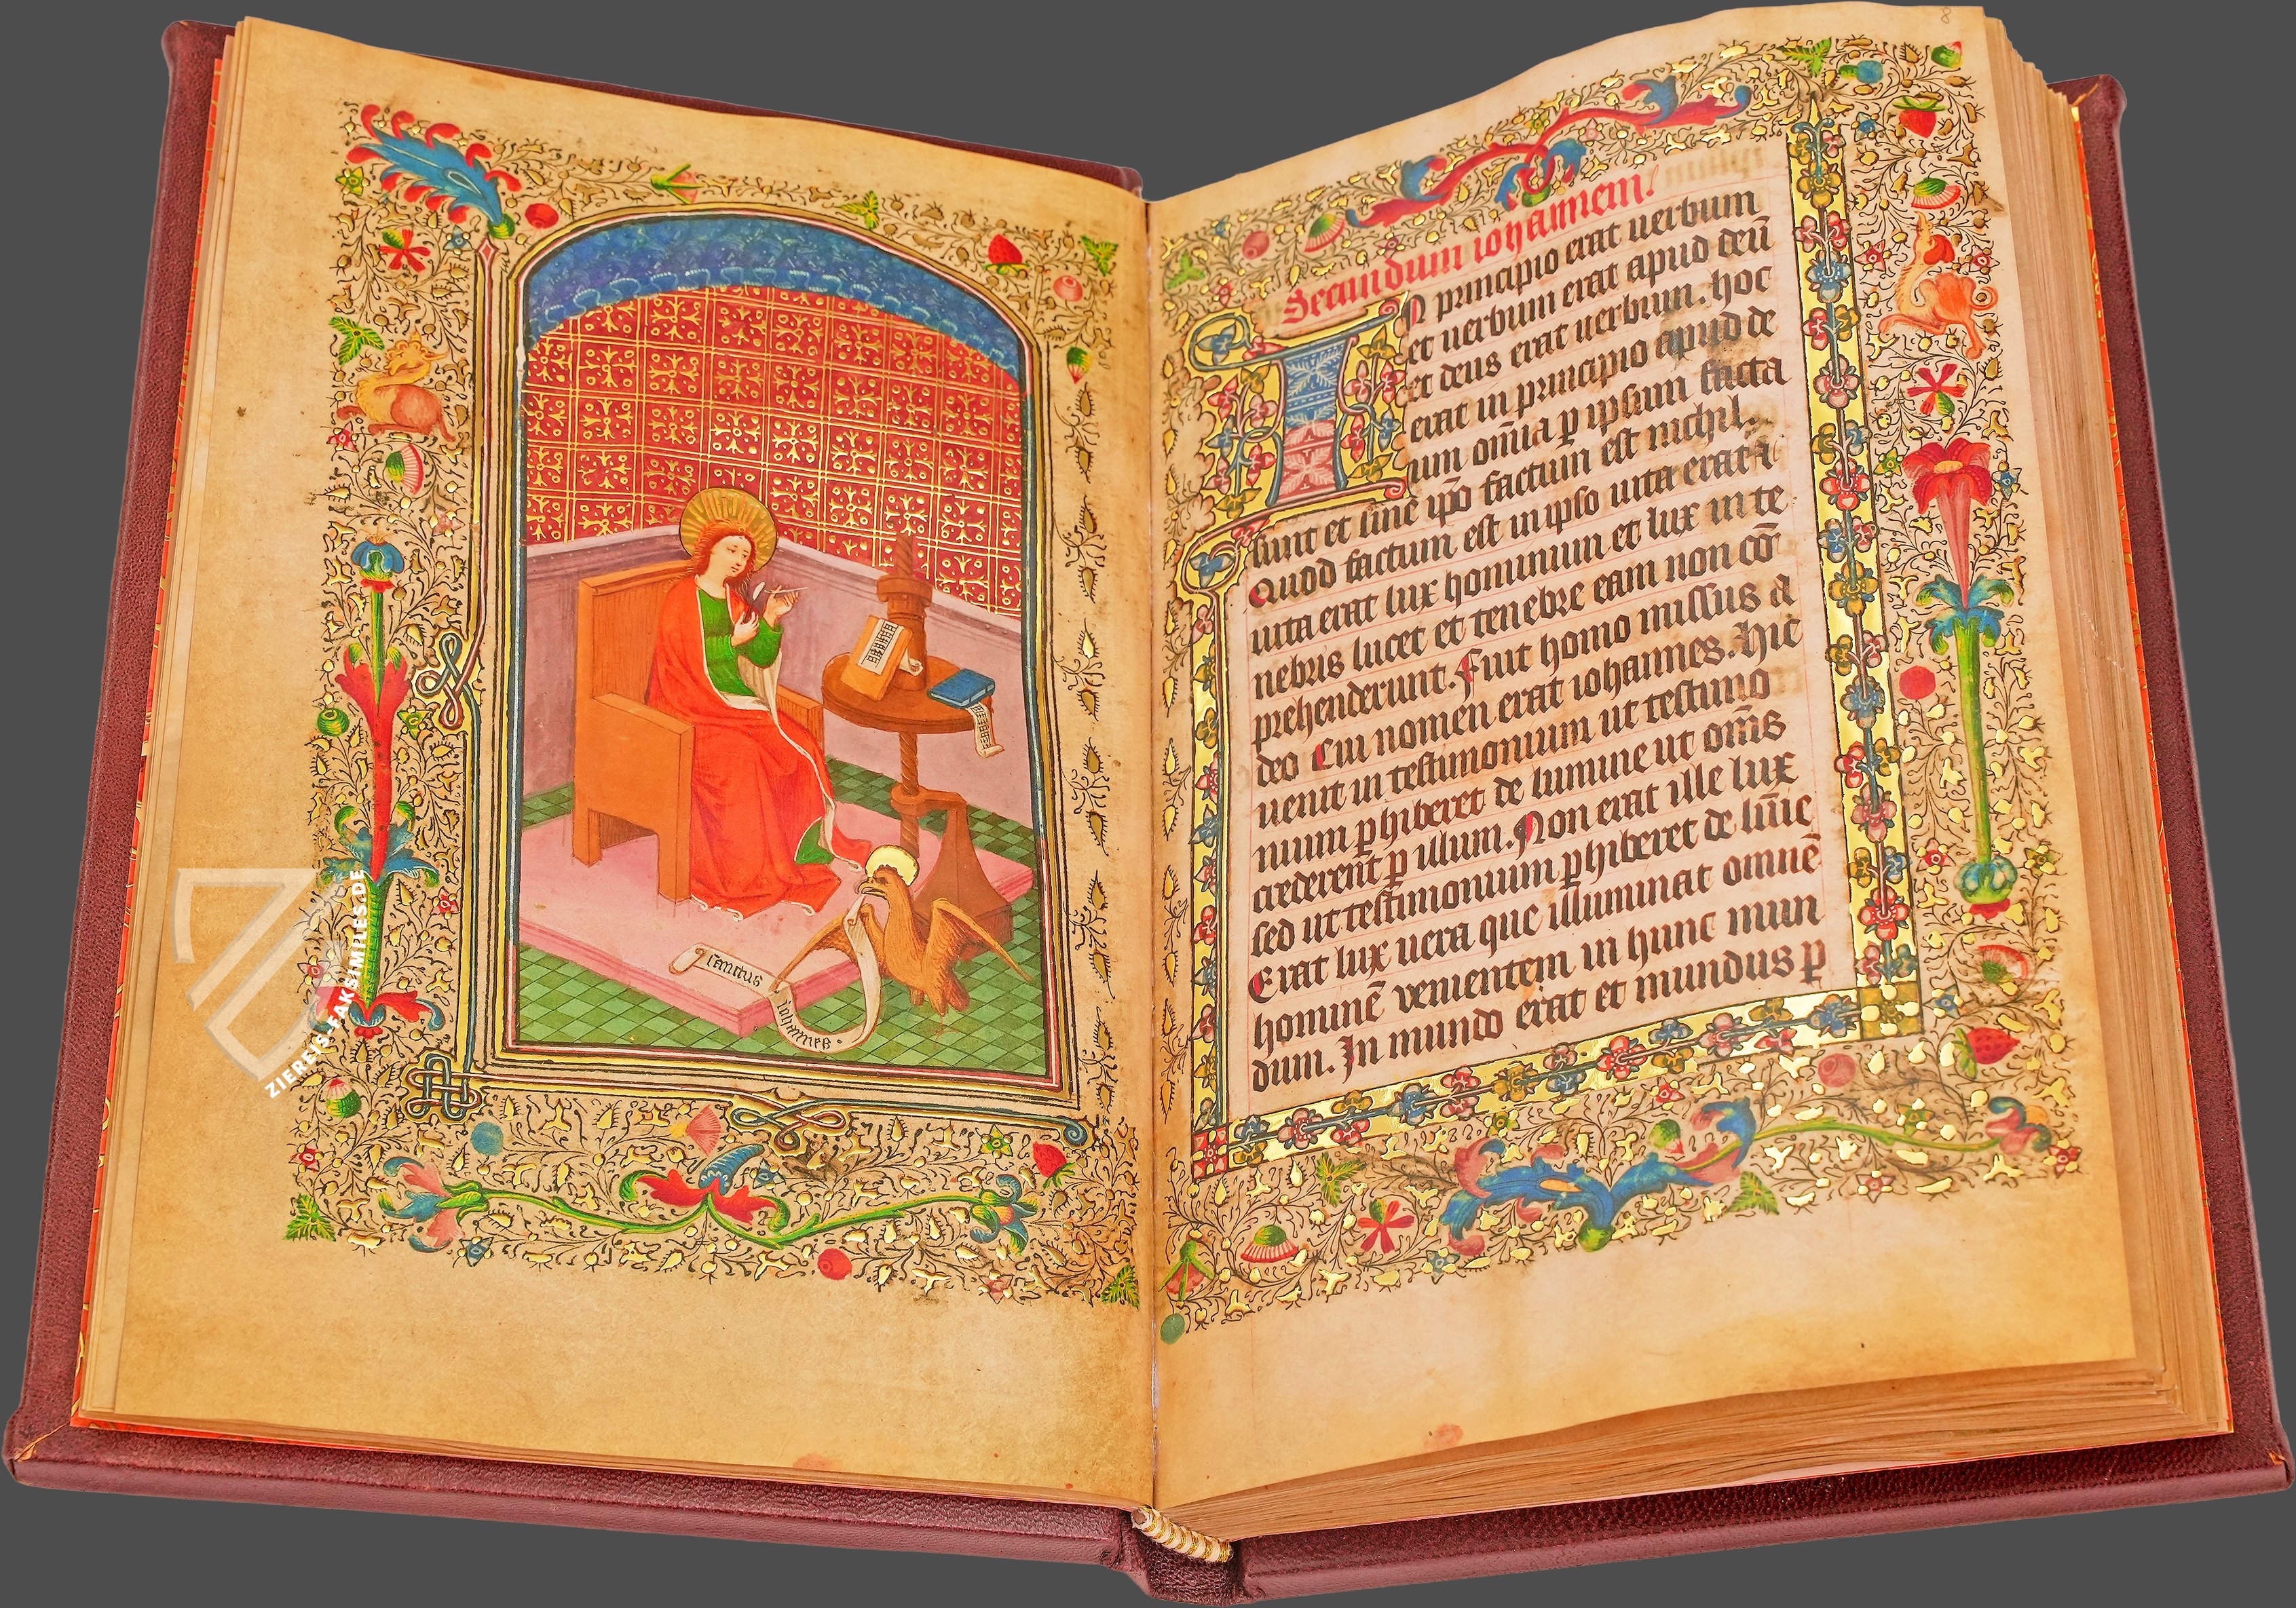 sanctus
iohannes
ZIEREIS-FAKSIMILES.DE
Secundum iohannem.
IN principio erat uerbum
et uerbum erat apud deū
et deus erat uerbum. hoc
erat in principio apud de
um omīa ꝑ ipsum facta
sunt et sine ipo factum est nichil.
Quod factum est in ipso uita erat ⁊
uita erat lux hominum et lux in te
nebris lucet et tenebre eam non cō
prehenderunt. Fuit homo missus a
deo Cui nomen erat iohannes. Hic
uenit in testimonium ut testimo
nium ꝑhiberet de lumine ut om̄s
crederent ꝑ illum. Non erat ille lux
sed ut testimonium ꝑhiberet de lūīe
Erat lux uera que illuminat omnē
hominē venientem in hunc mun
dum. In mundo erat et mundus ꝑ